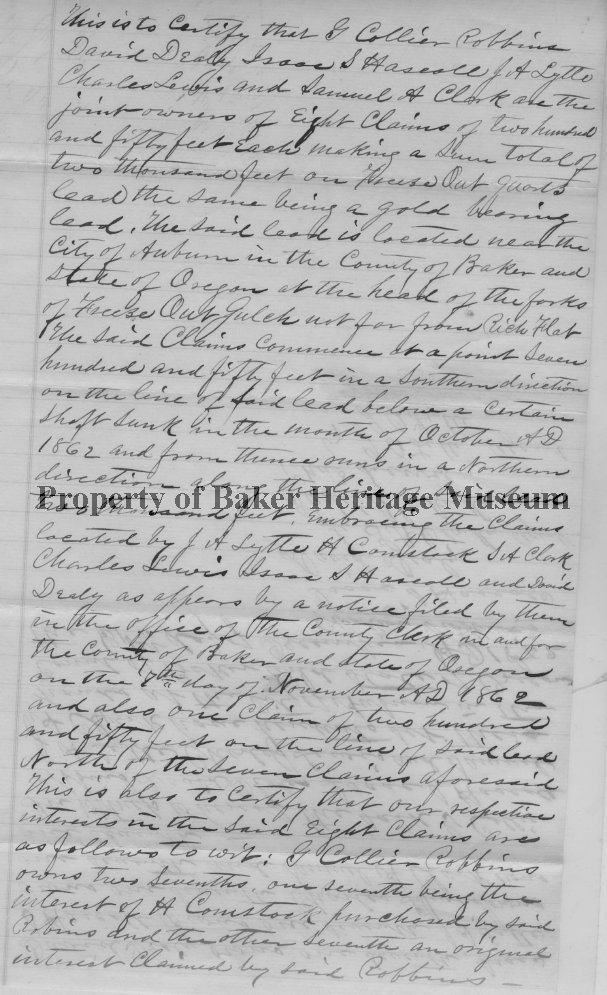 This is to Certify that G Collier Robbins
David Dealy Isaac S Hascall J A Lytle
Charles Lewis and Samuel A Clark are the
joint owners of Eight Claims of two hundred
and fifty feet Each making a Sum total of
two thousand feet on Freeze Out Quarts
lead the same being a gold bearing
lead. The said lead is located near the
City of Auburn in the County of Baker and
State of Oregon at the head of the forks
of Freeze Out Gulch not far from Rich Flat
The Said Claims Commence at a point Seven
hundred and fifty feet in a Southern direction
on the line of said lead below a certain
shaft sunk in the month of October A D
1862 and from thence runs in a Northern
direction along the line of
Property of Baker Heritage Museum
feet, Embracing the Claims
located by J A Lytle H Comstock S A Clark
Charles Lewis Isaac S Hascall and David
Dealy as appears by a notice filed by them
in the office of the County Clerk in and for
the County of Baker and State of Oregon
on the 7th day of November A D 1862
and also one Claim of two hundred
and fifty feet on the line of said lead
North of the Seven Claims aforesaid
This is also to Certify that our respective
interests in the Said Eight Claims are
as follows to wit: G Collier Robbins
owns two Sevenths, one seventh being the
interest of H Comstock purchased by said
Robins and the other seventh an original
interest Claimed by said Robbins —